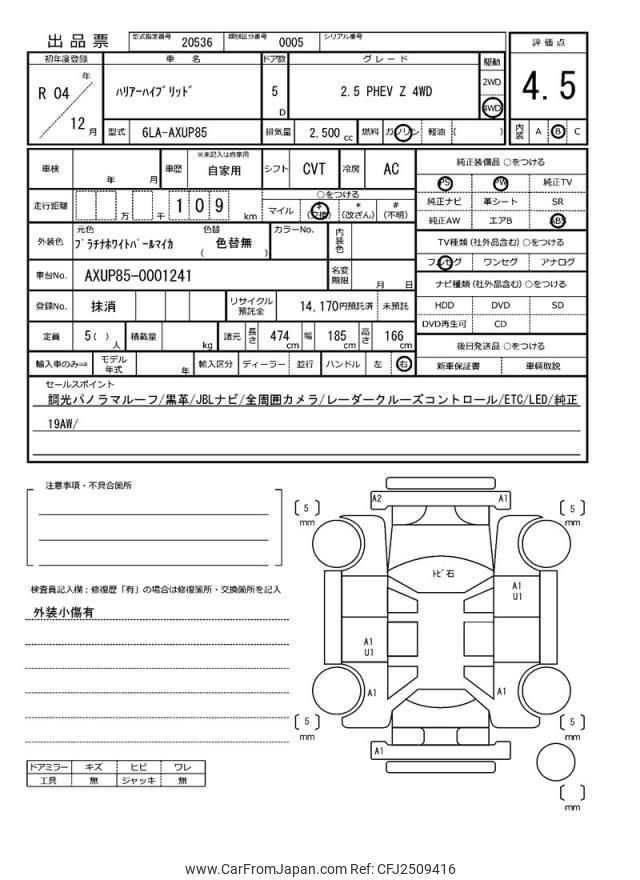 出品票 型式指定番号 20536 類別区分番号 0005 シリアル番号
評価点
4.5
初年度登録 車 名 ドア数 グレード 駆動
R 04 年 12 月
ハリアーハイブリッド 5 D 2.5 PHEV Z 4WD 2WD 4WD
型式 6LA-AXUP85 排気量 2,500 cc 燃料 ガソリン 軽油 ( )
内装 A B C
車検 年 月 車歴 ※未記入は自家用 自家用 シフト CVT 冷房 AC
走行距離 万 千 1 0 9 km
○をつける
マイル $(交換) *(改ざん) #(不明)
外装色 元色 プラチナホワイトパールマイカ 色替 ( 色替無 ) カラーNo. 内装色
車台No. AXUP85-0001241 名変期限 月 日
登録No. 抹消 リサイクル預託金 14,170円預託済 未預託
定員 5( ) 人 積載量 kg 諸元 長さ 474 cm 幅 185 cm 高さ 166 cm
輸入車のみ⇒ モデル年式 年 輸入区分 ディーラー 並行 ハンドル 左 右
純正装備品 ○をつける
PS PW 純正TV
純正ナビ 革シート SR
純正AW エアB ABS
TV種類 (社外品含む) ○をつける
フルセグ ワンセグ アナログ
ナビ種類 (社外品含む) ○をつける
HDD DVD SD
DVD再生可 CD
後日発送品 ○をつける
新車保証書 車輌取説
セールスポイント
調光パノラマルーフ/黒革/JBLナビ/全周囲カメラ/レーダークルーズコントロール/ETC/LED/純正
19AW/
注意事項・不具合箇所
検査員記入欄：修復歴「有」の場合は修復箇所・交換箇所を記入
外装小傷有
ドアミラー キズ ヒビ ワレ
工具 無 ジャッキ 無
A2 A1
〔 5 〕 mm
〔 5 〕 mm
トビ石
A1
U1
A1
U1
A1 A1
〔 5 〕 mm
〔 5 〕 mm
A1
〔 〕 mm
www.CarFromJapan.com Ref: CFJ2509416